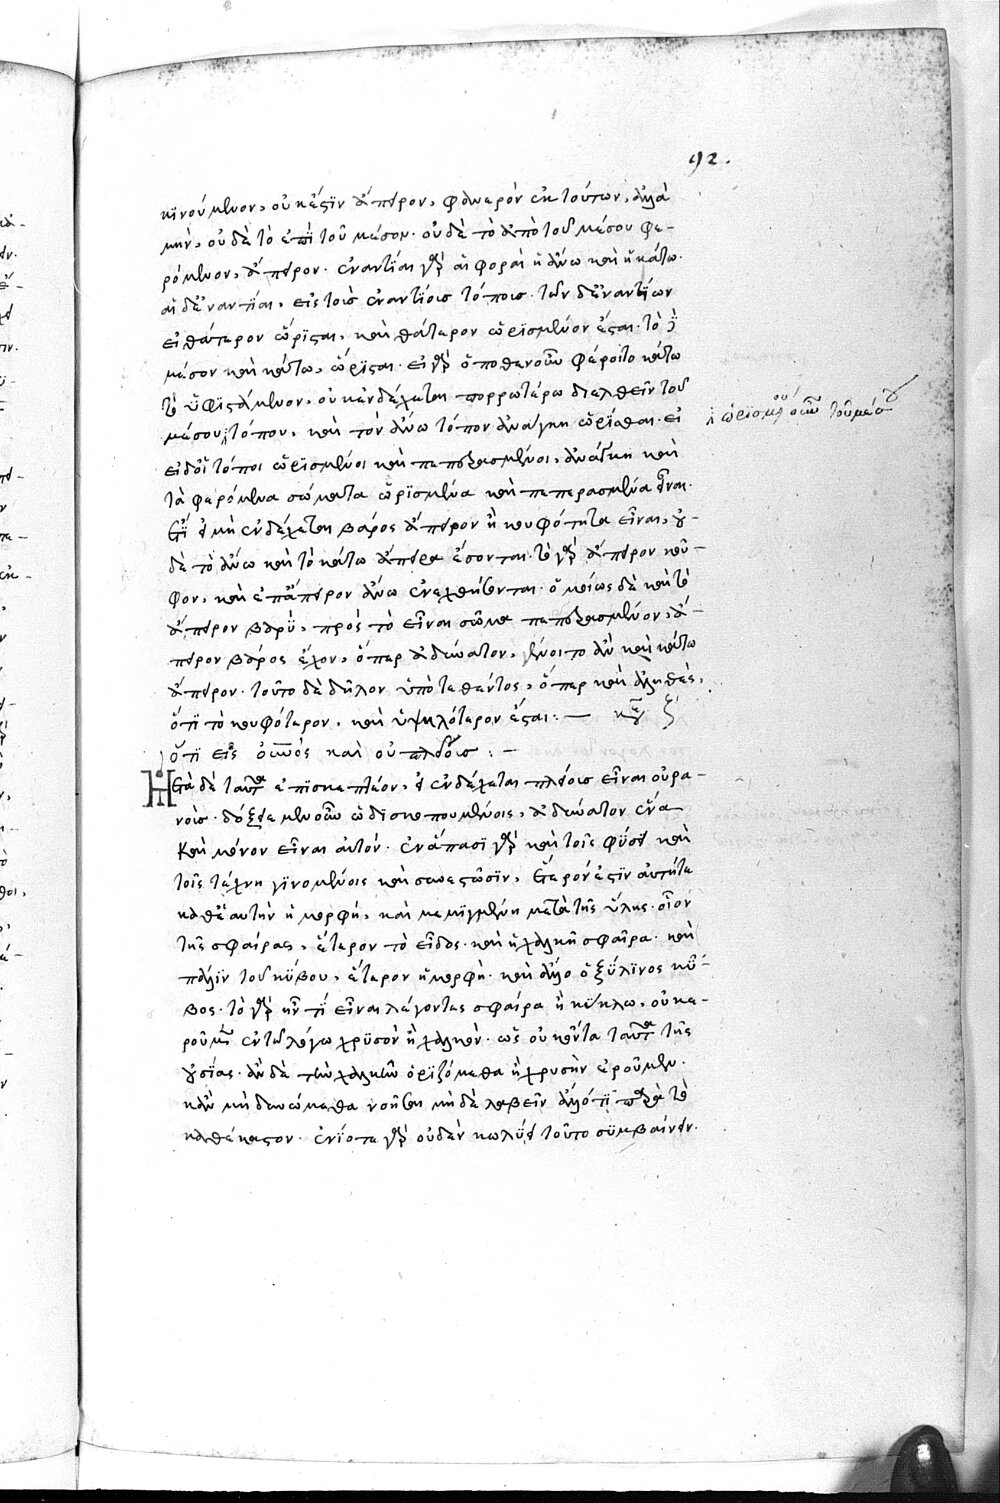 92.
κϊνούμενον, οὐκ ἔστιν ἄπειρον, φανερὸν ἐκ τούτων. ἀλλὰ
μὴν, οὐδὲ τὸ ἐπὶ τοῦ μέσου. οὐδὲ τὸ ἀπὸ τοῦ μέσου φε-
ρόμενον, ἄπειρον. ἐναντίαι γὰρ αἱ φοραὶ ἡ ἄνω καὶ ἡ κάτω.
αἱ δ' ἐναντίαι, εἰς τοὺς ἐναντίους τόπους. τῶν δ' ἐναντίων
εἰ θάτερον ὥρισται, καὶ θάτερον ὡρισμένον ἔσται. τὸ δὲ
μέσον καὶ κάτω, ὥρισται. εἰ γὰρ ὁποθενοῦν φέροιτο κάτω
τὸ ὑφιστάμενον, οὐκ ἐνδέχεται πορρωτέρω διελθεῖν τοῦ
μέσου τόπον, καὶ τὸν ἄνω τόπον ἀνάγκη ὡρίσθαι. εἰ
ὡρισμένου οὖν τοῦ μέσου
εἰ δ' οἱ τόποι ὡρισμένοι καὶ πεπερασμένοι, ἀνάγκη καὶ
τὰ φερόμενα σώματα ὡρισμένα καὶ πεπερασμένα εἶναι.
ἔτι εἰ μὴ ἐνδέχεται βάρος ἄπειρον ἢ κουφότητα εἶναι, οὐ-
δὲ τὸ ἄνω καὶ τὸ κάτω ἄπειρα ἔσονται. τὸ γὰρ ἄπειρον κοῦ-
φον, καὶ ἐπ' ἄπειρον ἄνω ἐνεχθήσεται. ὁμοίως δὲ καὶ τὸ
ἄπειρον βαρὺ, πρὸς τὸ εἶναι σῶμα πεπερασμένον, ἄ-
πειρον βάρος ἔχον, ὅπερ ἀδύνατον, γένοιτο ἂν καὶ κάτω
ἄπειρον. τοῦτο δὲ δῆλον ὑποτεθέντος, ὅπερ καὶ ἀληθὲς,
ὅτι τὸ κουφότερον, καὶ ὑψηλότερον ἔσται: — κεφ ζ
ὅτι εἷς οὐνὸς καὶ οὐ πλείους: —
Μετὰ δὲ ταῦτα ἐπισκεπτέον, εἰ ἐνδέχεται πλείους εἶναι οὐρα-
νούς. δόξειε μὲν οὖν ὡδὶ σκοπουμένοις, ἀδύνατον ἕνα
καὶ μόνον εἶναι αὐτόν. ἐν ἅπασι γὰρ καὶ τοῖς φύσει καὶ
τοῖς τέχνῃ γινομένοις καὶ συνεστῶσιν, ἕτερόν ἐστιν αὐτήτε
καθ' ἑαυτὴν ἡ μορφή, καὶ μεμιγμένη μετὰ τῆς ὕλης. οἷον
τῆς σφαίρας, ἕτερον τὸ εἶδος. καὶ ἡ χαλκῆ σφαῖρα. καὶ
πάλιν τοῦ κύβου, ἕτερον ἡ μορφὴ. καὶ ἄλλο ὁ ξύλινος κύ-
βος. τὸ γὰρ τί εἶναι λέγοντες σφαίρα ἢ κύκλω, οὐκ ἐ-
ροῦμεν ἐν τῷ λόγω χρυσὸν ἢ χαλκὸν. ὡς οὐκ ὄντα ταῦτα τῆς
οὐσίας. ἂν δὲ τὴν χαλκῆν ὁριζόμεθα ἢ χρυσῆν ἐροῦμεν.
κἂν μὴ δυνώμεθα νοῆσαι μηδὲ λαβεῖν ἄλλό τι παρὰ τὸ
καθέκαστον. ἐνίοτε γὰρ οὐδὲν κωλύει τοῦτο συμβαίνειν.